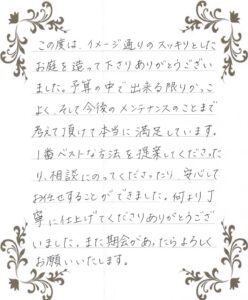 この度は、イメージ通りのスッキリとした
お庭を造って下さりありがとうござい
ました。予算の中で出来る限りかっこ
よく、そして今後のメンテナンスのことまで
考えて頂けて本当に満足しています。
1番ベストな方法を提案してくださった
り、相談にのってくださったり、安心して
お任せすることができました。何より丁
寧に仕上げてくださりありがとうござ
いました。また期会があったらよろしく
お願いいたします。